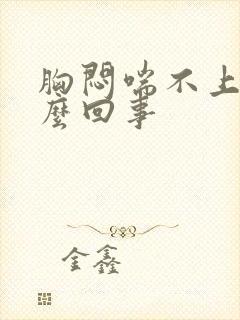 胸悶喘不上
麼回事
金鑫